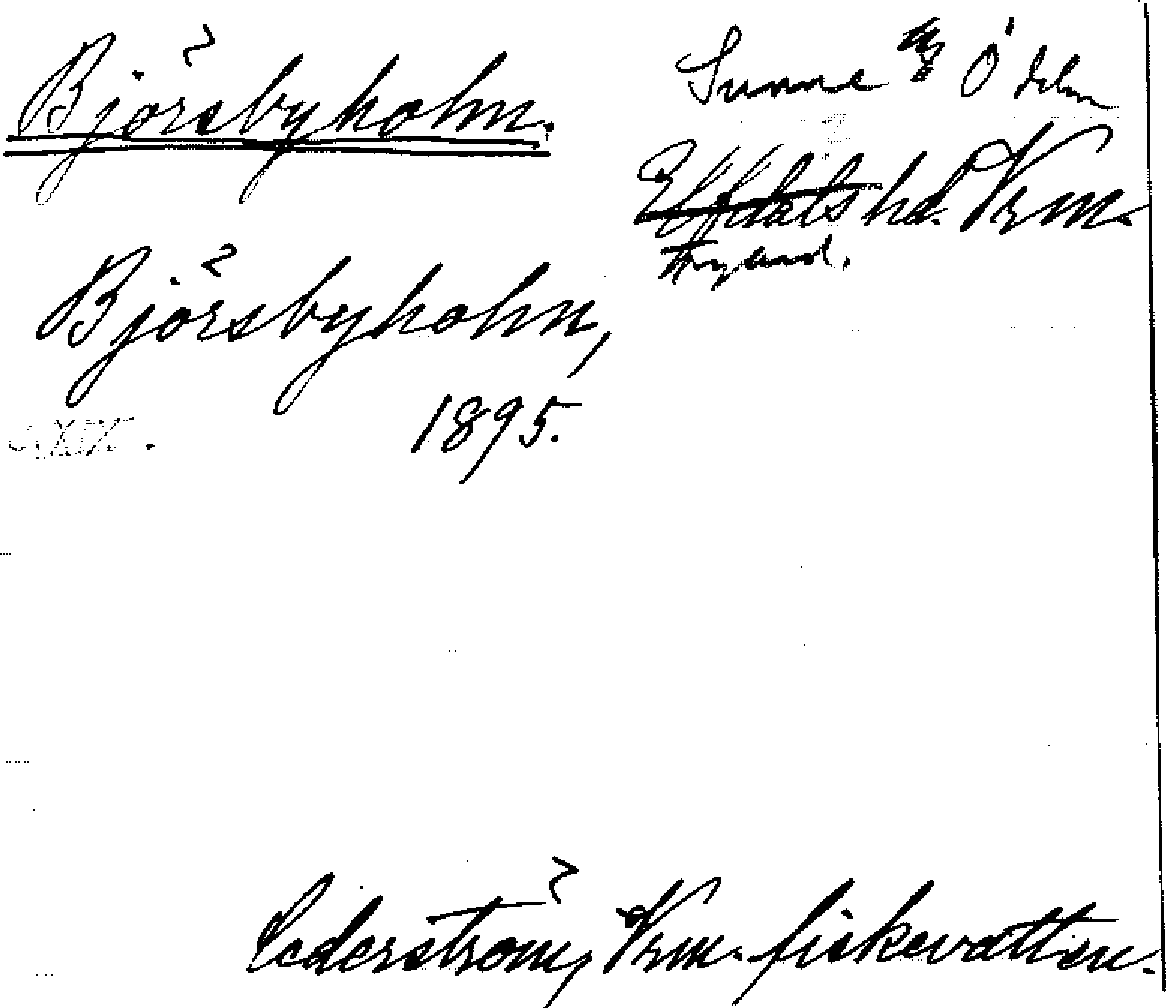 Björsbyholm.
Sunne sn Ö delen
Elfdals hd. Vrm.
Fryksd.
Björsbyholm,
1895.
Cederström, Vrm. fiskevatten.